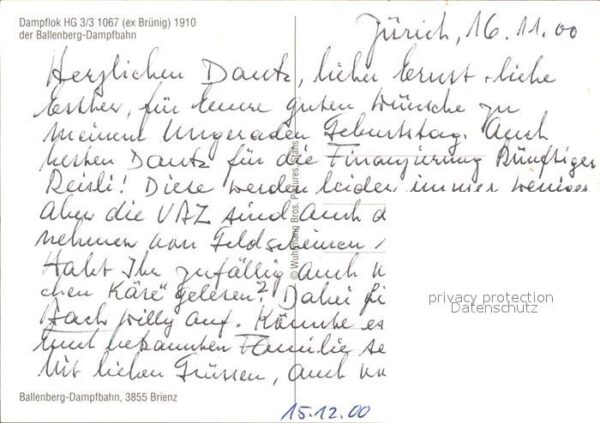 Dampflok HG 3/3 1067 (ex Brünig) 1910
der Ballenberg-Dampfbahn
Zürich, 16.11.00
Herzlichen Dank, lieber Ernst + liebe
Esther, für Euere guten Wünsche zu
meinem Ungeraden Geburtstag. Auch
besten Dank für die Finanzierung Künftiger
Reisli! Diese werden leider immer weniger
aber die VAZ sind auch
nehmen von Geldscheinen
Habt Ihr zufällig auch
chen Käse" gelesen? Dabei
Hach Willy auf. Könnte es
Euch bekannten Familie
Mit lieben Grüssen, auch
© Wuhrmann Bros. Pictures
privacy protection
Datenschutz
Ballenberg-Dampfbahn, 3855 Brienz
15.12.00